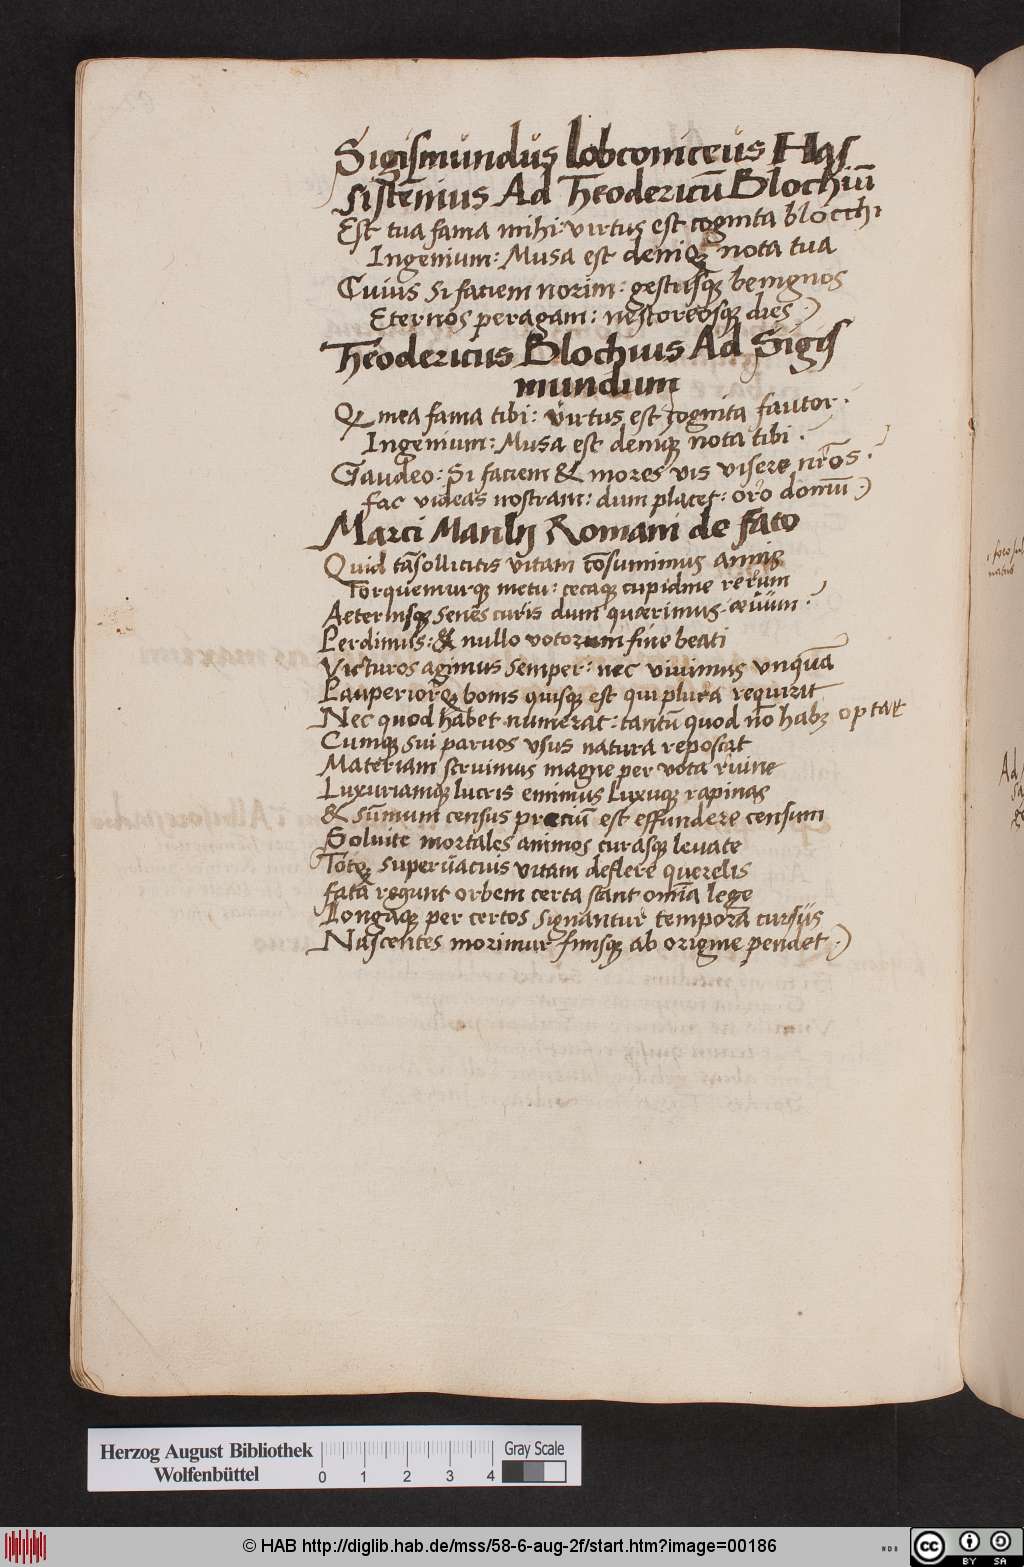 Sigismundus lobconiceus Has
sistenius Ad Theodericū Blochiū
Est tua fama mihi: virtus est cognita blocchi
Ingenium: Musa est deniqꝫ nota tua
Cuius si faciem norim: gestusqꝫ benignos
Eternos peragam: nestoreosqꝫ dies ·)
Theodericus Blochius Ad Sigis
mundum
Qꝫ mea fama tibi: virtus est cognita fautor ·
Ingenium: Musa est deniqꝫ nota tibi ·
Gaudeo: Si faciem & mores vis visere nr̄os ·
Fac videas nostram: dum placet: oro domū ·)
Marci Manlij Romani de fato
Quid tā sollicitis vitam cōsumimus annis
Torquemurqꝫ metu: cecaqꝫ cupidine rerum
Aeternisqꝫ senes curis dum quærimus ævum ·
Perdimus: & nullo votorum fine beati
Victuros agimus semper: nec vivimus vnquā
Pauperiorqꝫ bonis quisqꝫ est qui plura requirit
Nec quod habet numerat: tantū quod nō habꝫ optat
Cumqꝫ sui parvos vsus natura reposcat
Materiam struimus magne per vota ruine
Luxuriamqꝫ lucris emimus Luxuqꝫ rapinas
& sūmum census preciū est effundere censum
Soluite mortales animos curasqꝫ levate
Totqꝫ supervacuis vitam deflere querelis
Fata regunt orbem certa stant omīa lege
Longaqꝫ per certos signantur tempora cursus
Nascentes morimur finisqꝫ ab origine pendet ·)
Herzog August Bibliothek
Wolfenbüttel
0 1 2 3 4
Gray Scale
© HAB http://diglib.hab.de/mss/58-6-aug-2f/start.htm?image=00186
cc BY SA